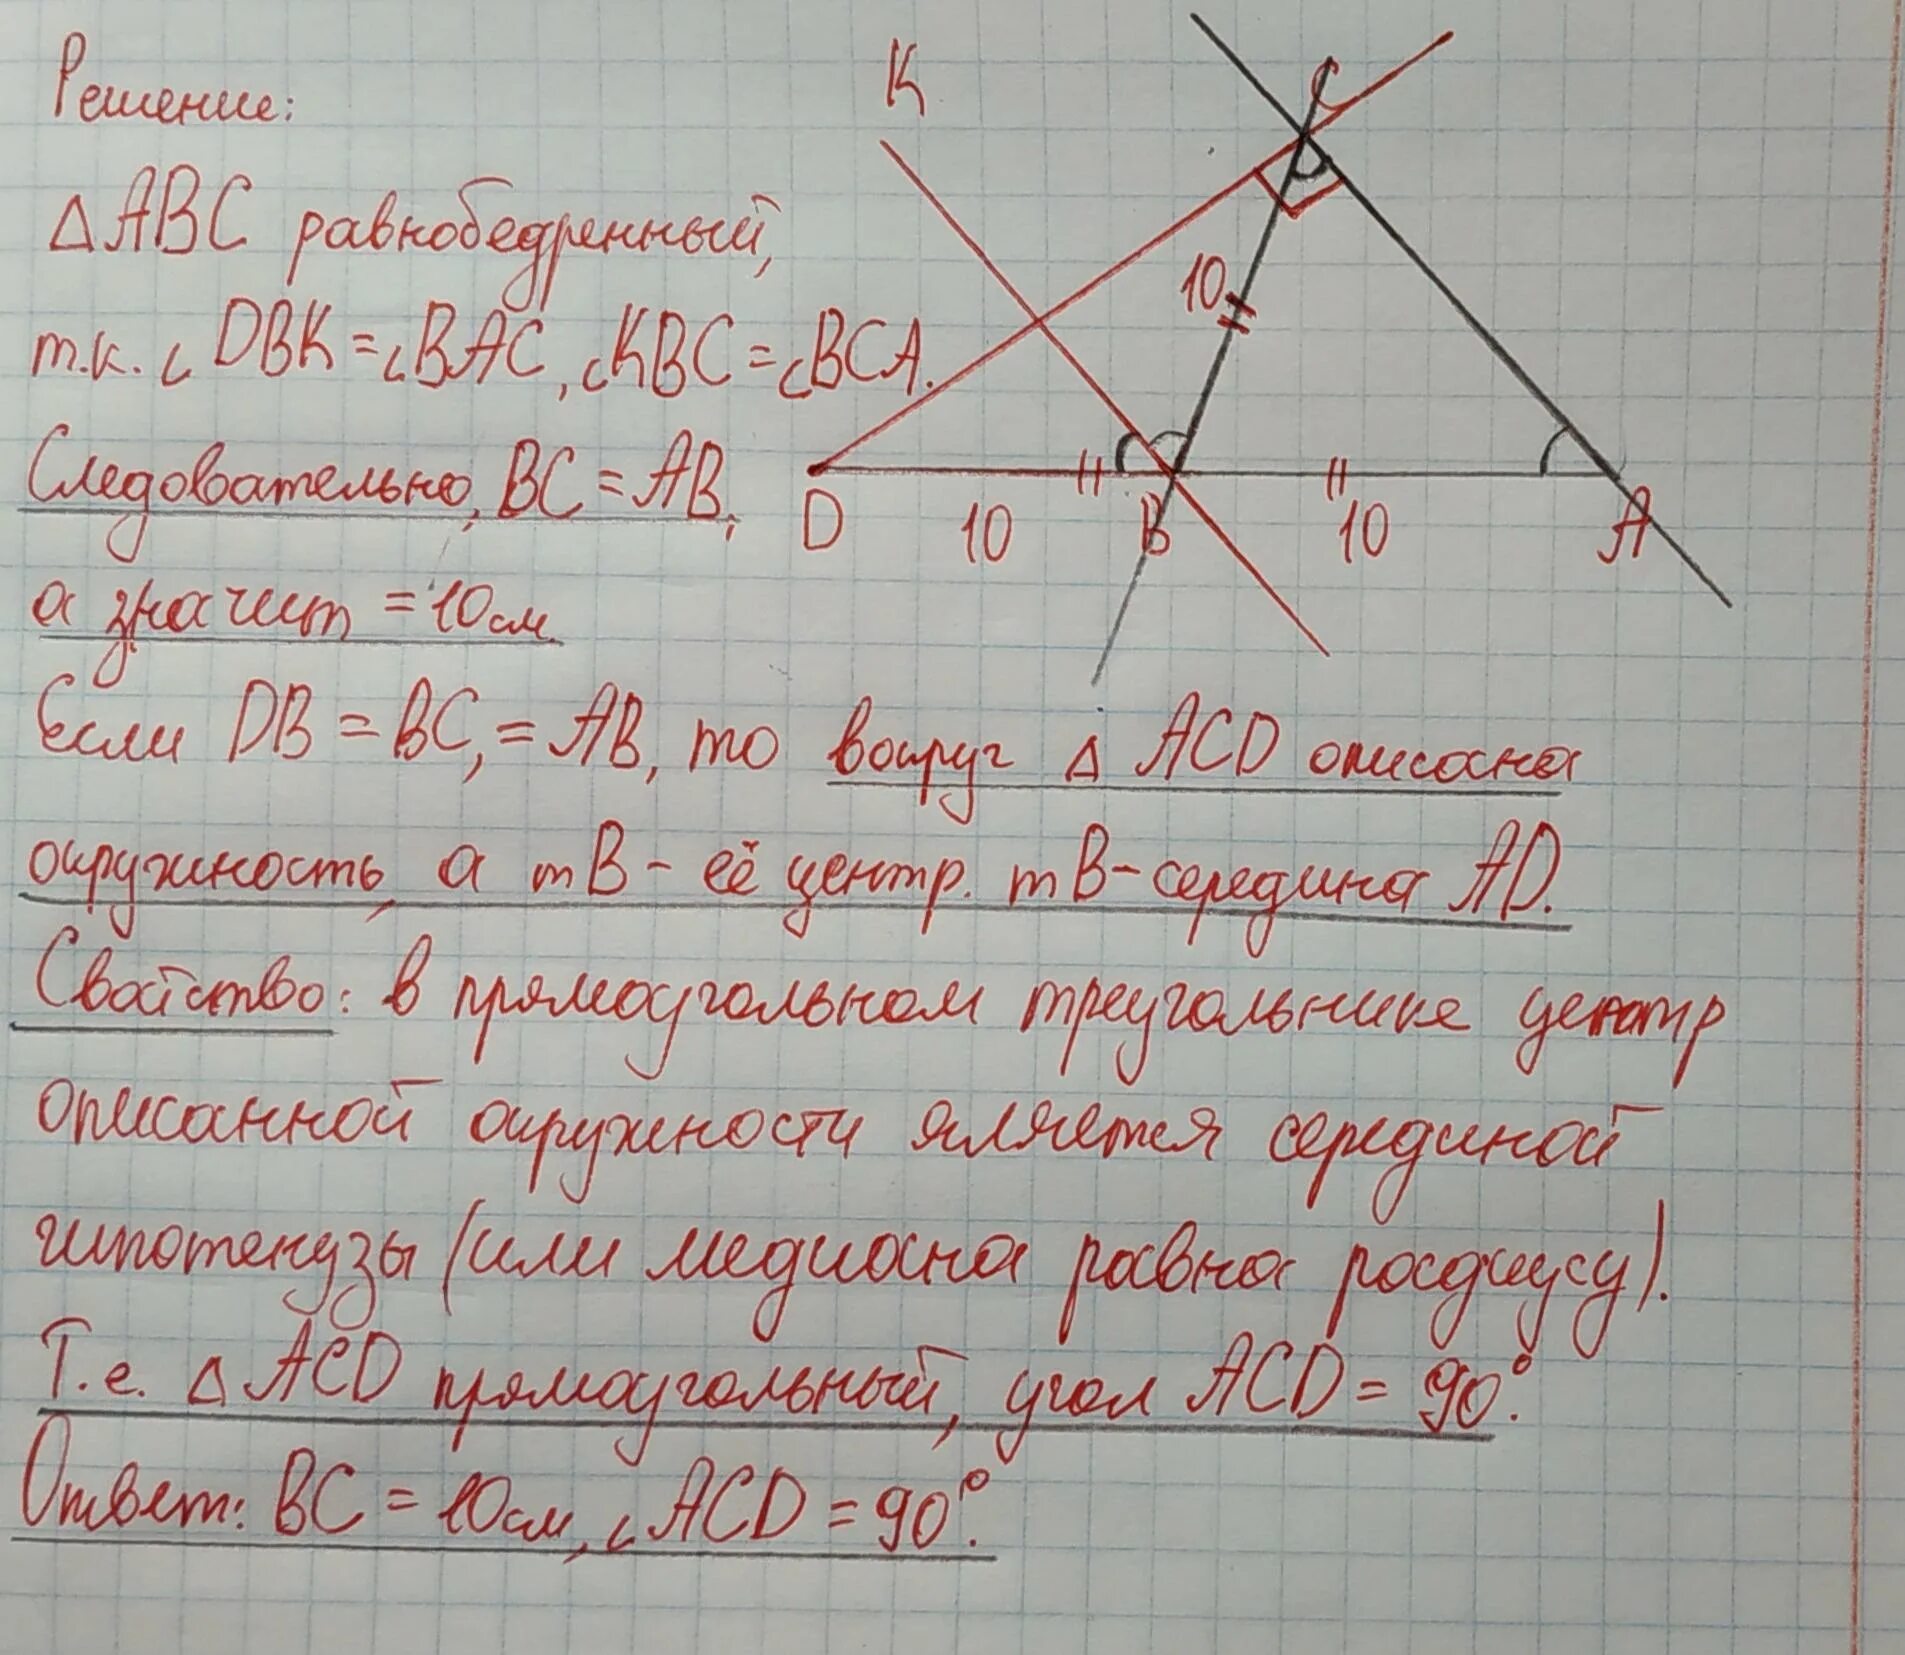 Решение:
△ABC равнобедренный,
т.к. ∠DBK = ∠BAC, ∠KBC = ∠BCA.
Следовательно, BC = AB,
а значит = 10см.
Если DB = BC, = AB, то вокруг △ ACD описана
окружность, а тB - её центр. тB - середина AD.
Свойство: в прямоугольном треугольнике центр
описанной окружности является серединой
гипотенузы (или медиана равна радиусу).
Т.е. △ACD прямоугольный, угол ACD = 90°.
Ответ: BC = 10см, ∠ACD = 90°.
K
C
10
D
10
B
10
A